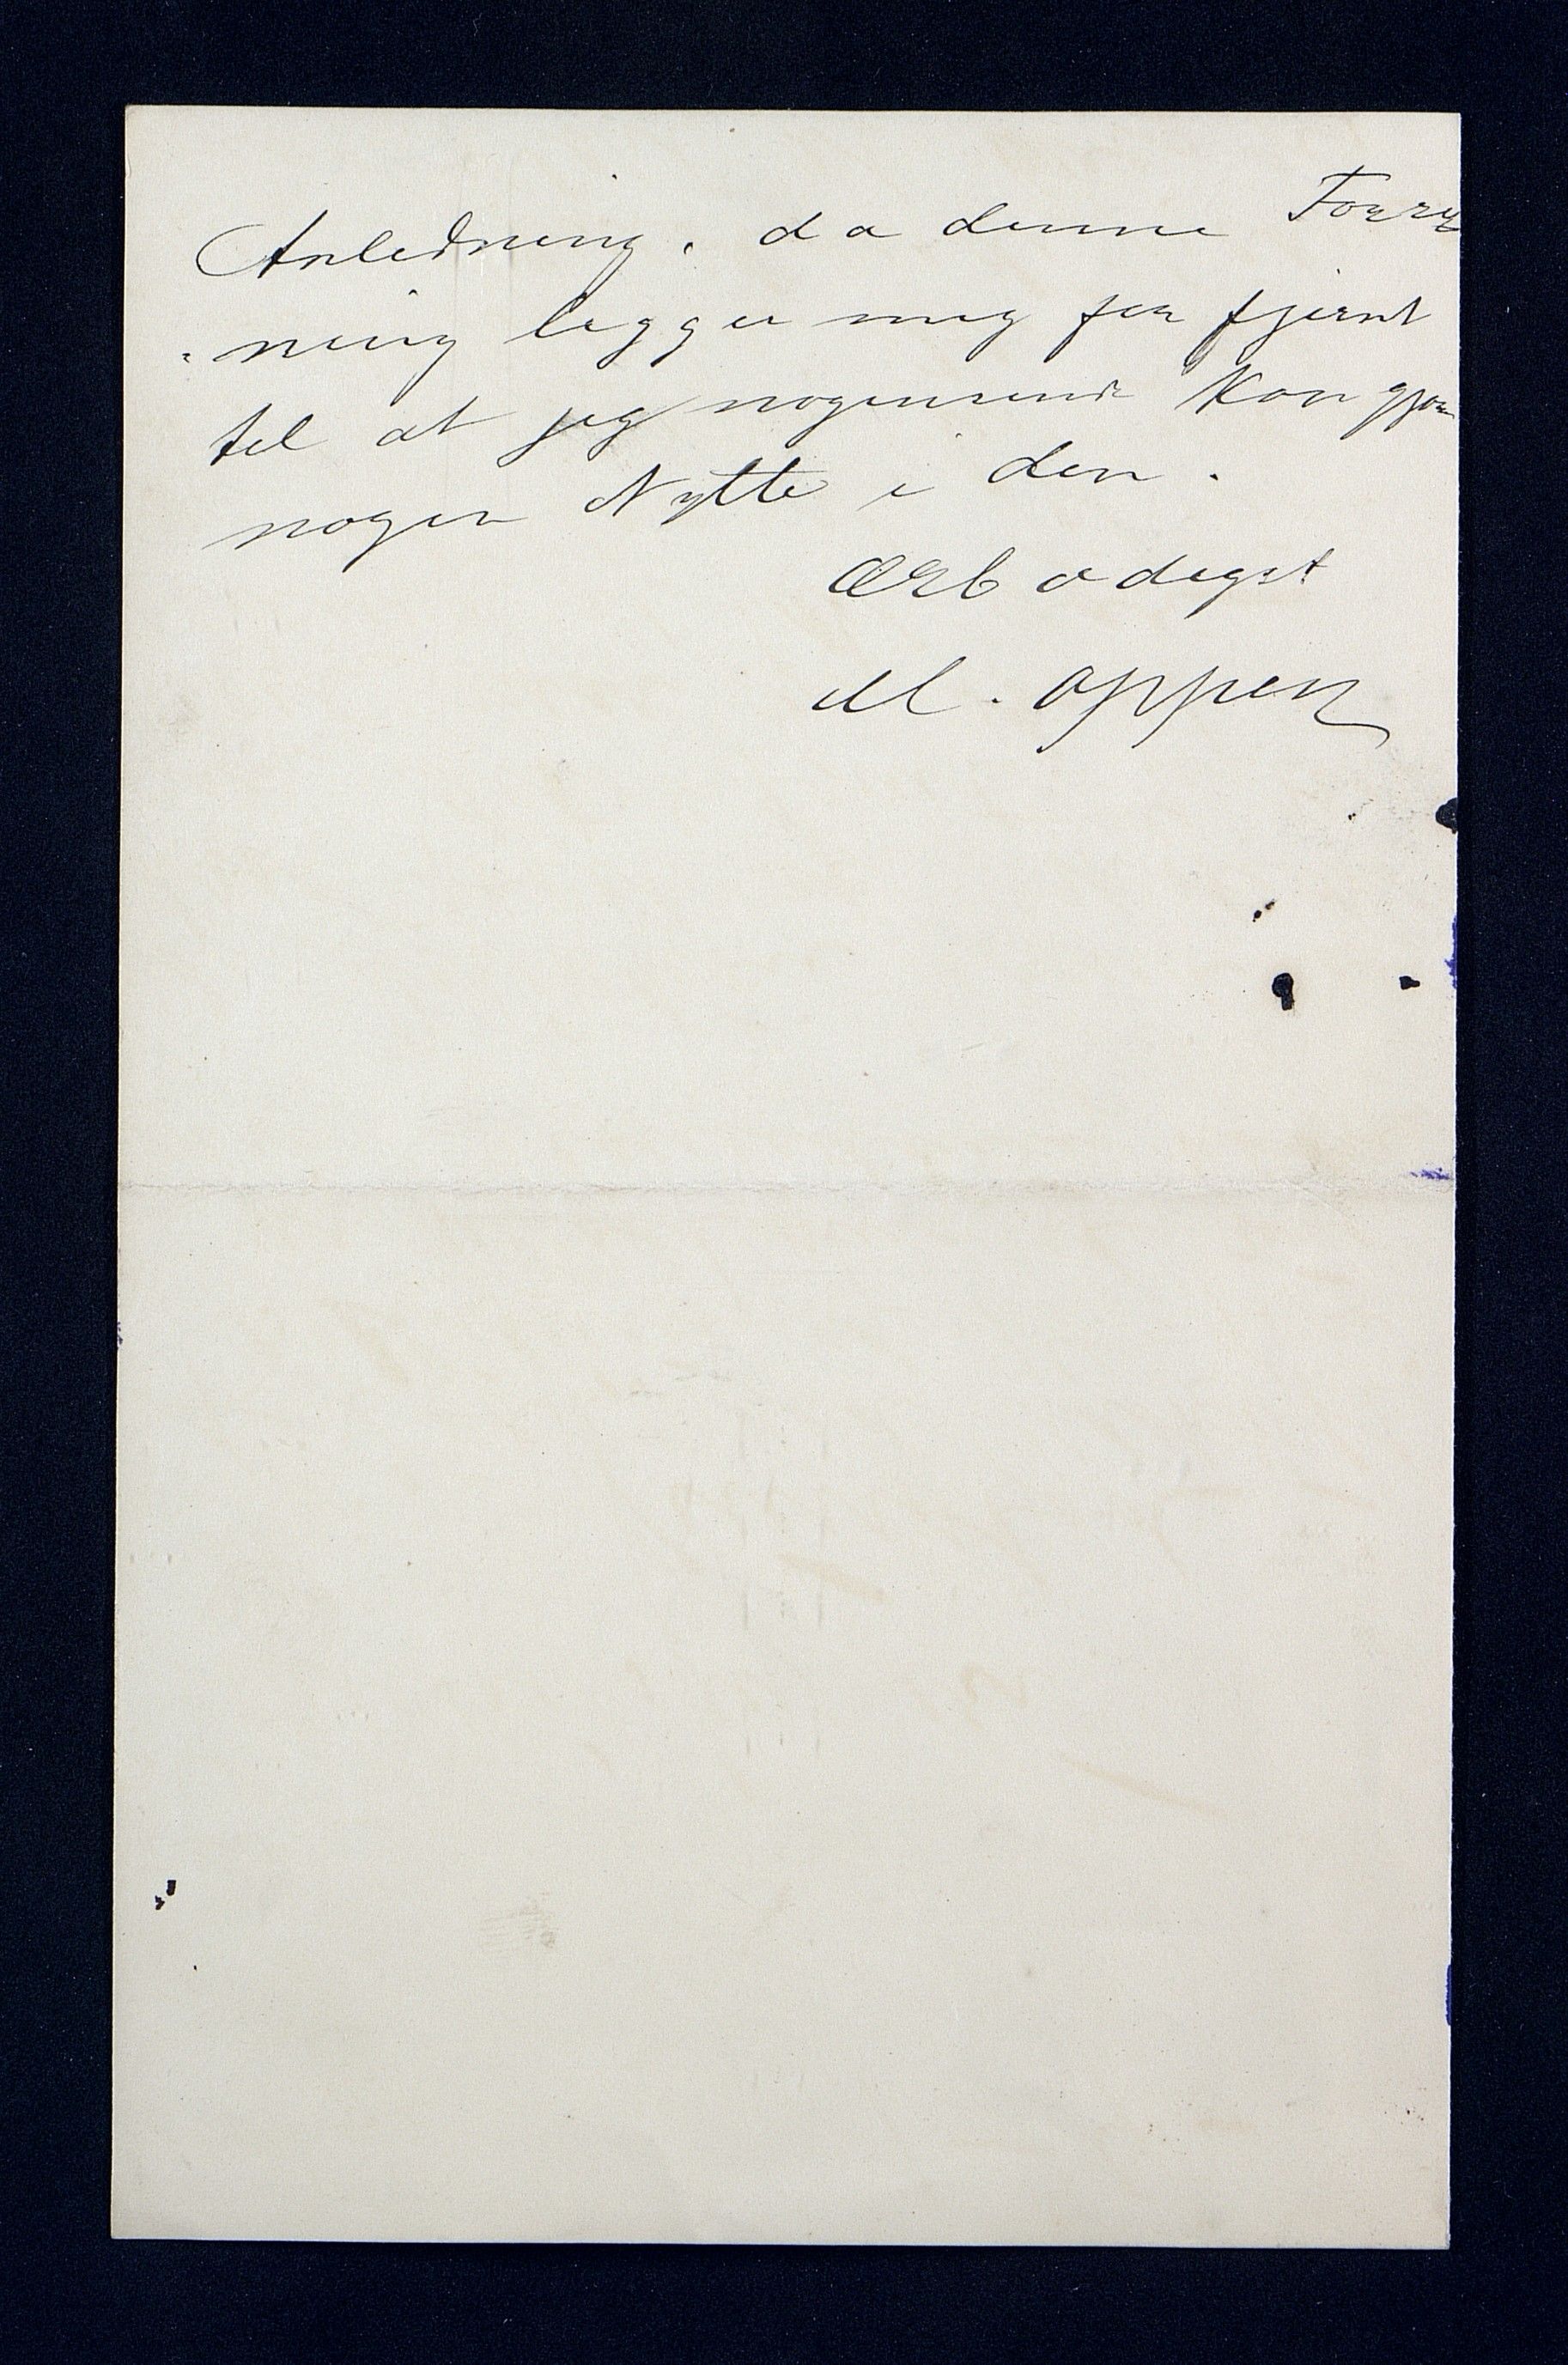 Anledning, da denne Forret
„ning ligger mig for fjernt
til at jeg nogensinde kan gjøre
nogen Nytte i den.
Ærbødigst
M. Oppen